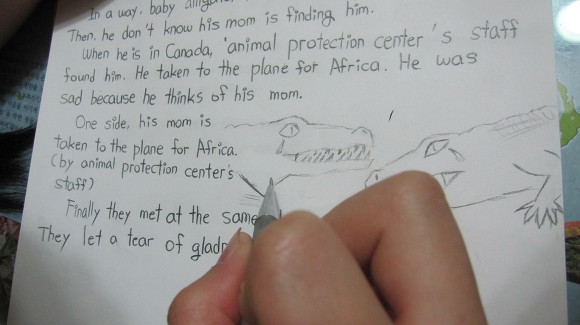 In a way, baby
Then, he don't know his mom is finding him.
When he is in Canada, 'animal protection center's staff
found him. He taken to the plane for Africa. He was
sad because he thinks of his mom.
One side, his mom is
taken to the plane for Africa.
(by animal protection center's
staff)
Finally they met at the same
They let a tear of